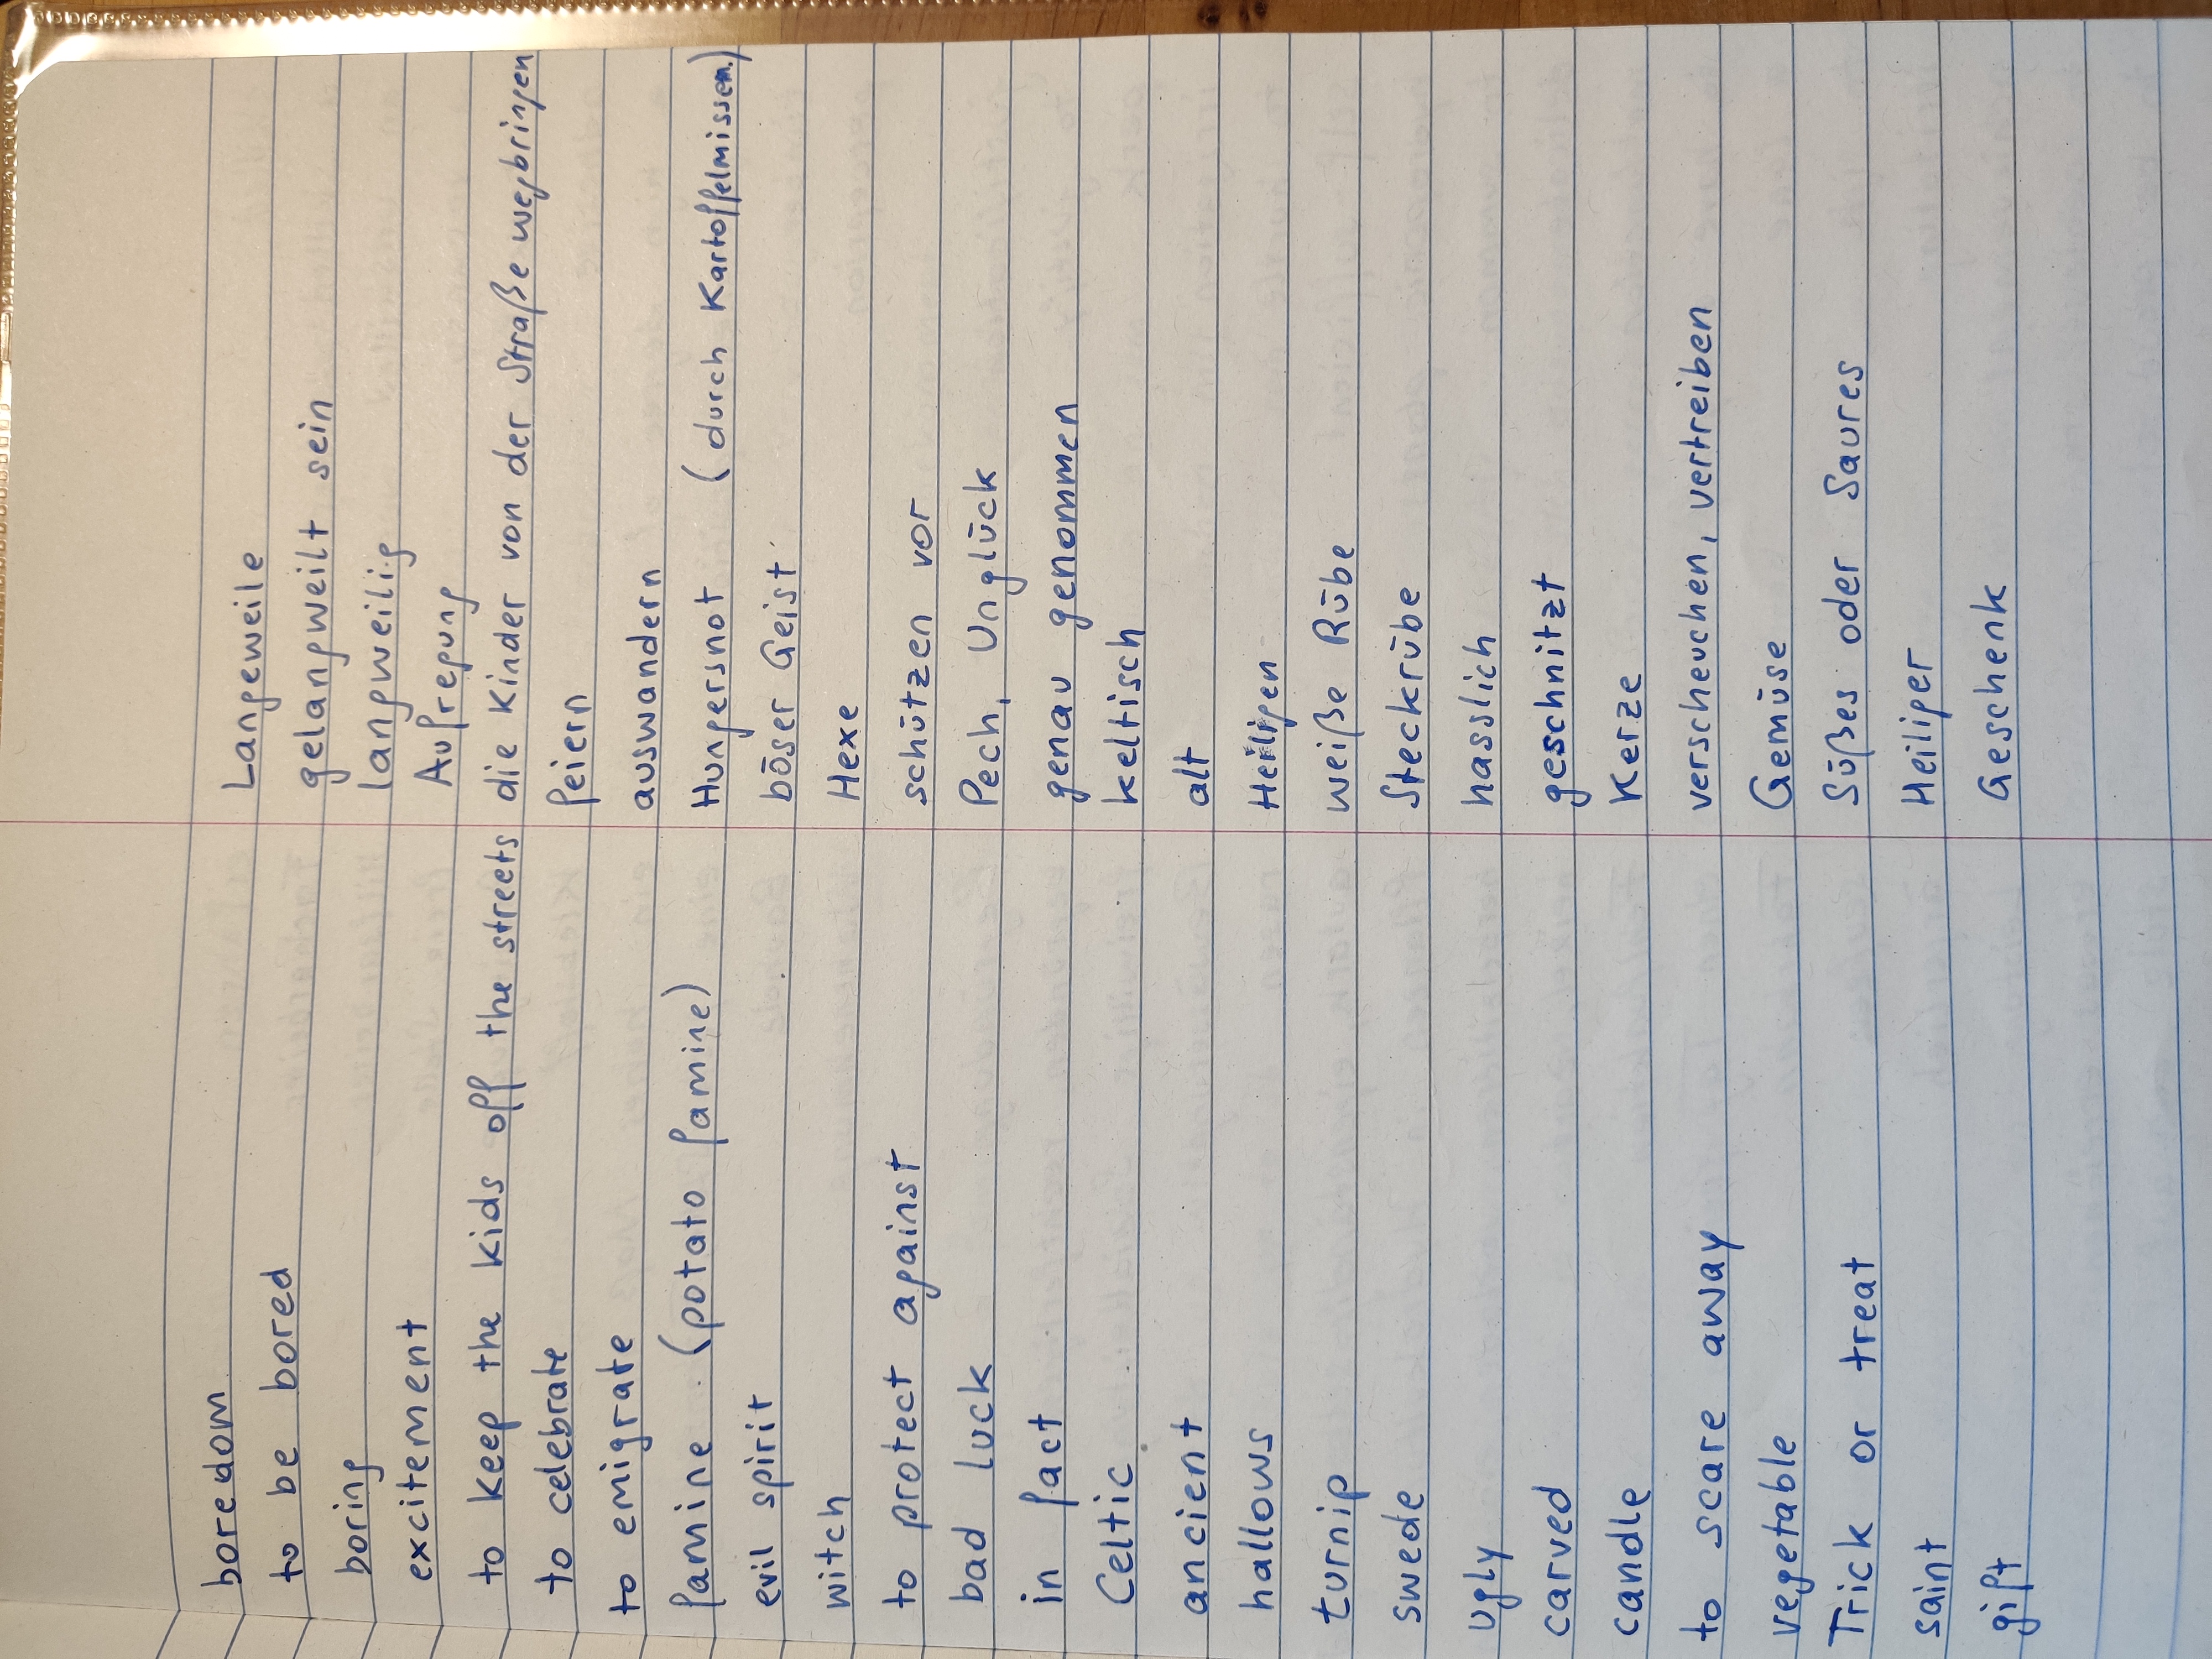 boredom Langeweile
to be bored gelangweilt sein
boring langweilig
excitement Aufregung
to keep the kids off the streets die Kinder von der Straße wegbringen
to celebrate feiern
to emigrate auswandern
famine (potato famine) Hungersnot (durch Kartoffelmissern.)
evil spirit böser Geist
witch Hexe
to protect against schützen vor
bad luck Pech, Unglück
in fact genau genommen
Celtic keltisch
ancient alt
hallows Heiligen
turnip weiße Rübe
swede Steckrübe
ugly hasslich
carved geschnitzt
candle Kerze
to scare away verscheuchen, vertreiben
vegetable Gemüse
Trick or treat Süßes oder Saures
saint Heiliger
gift Geschenk